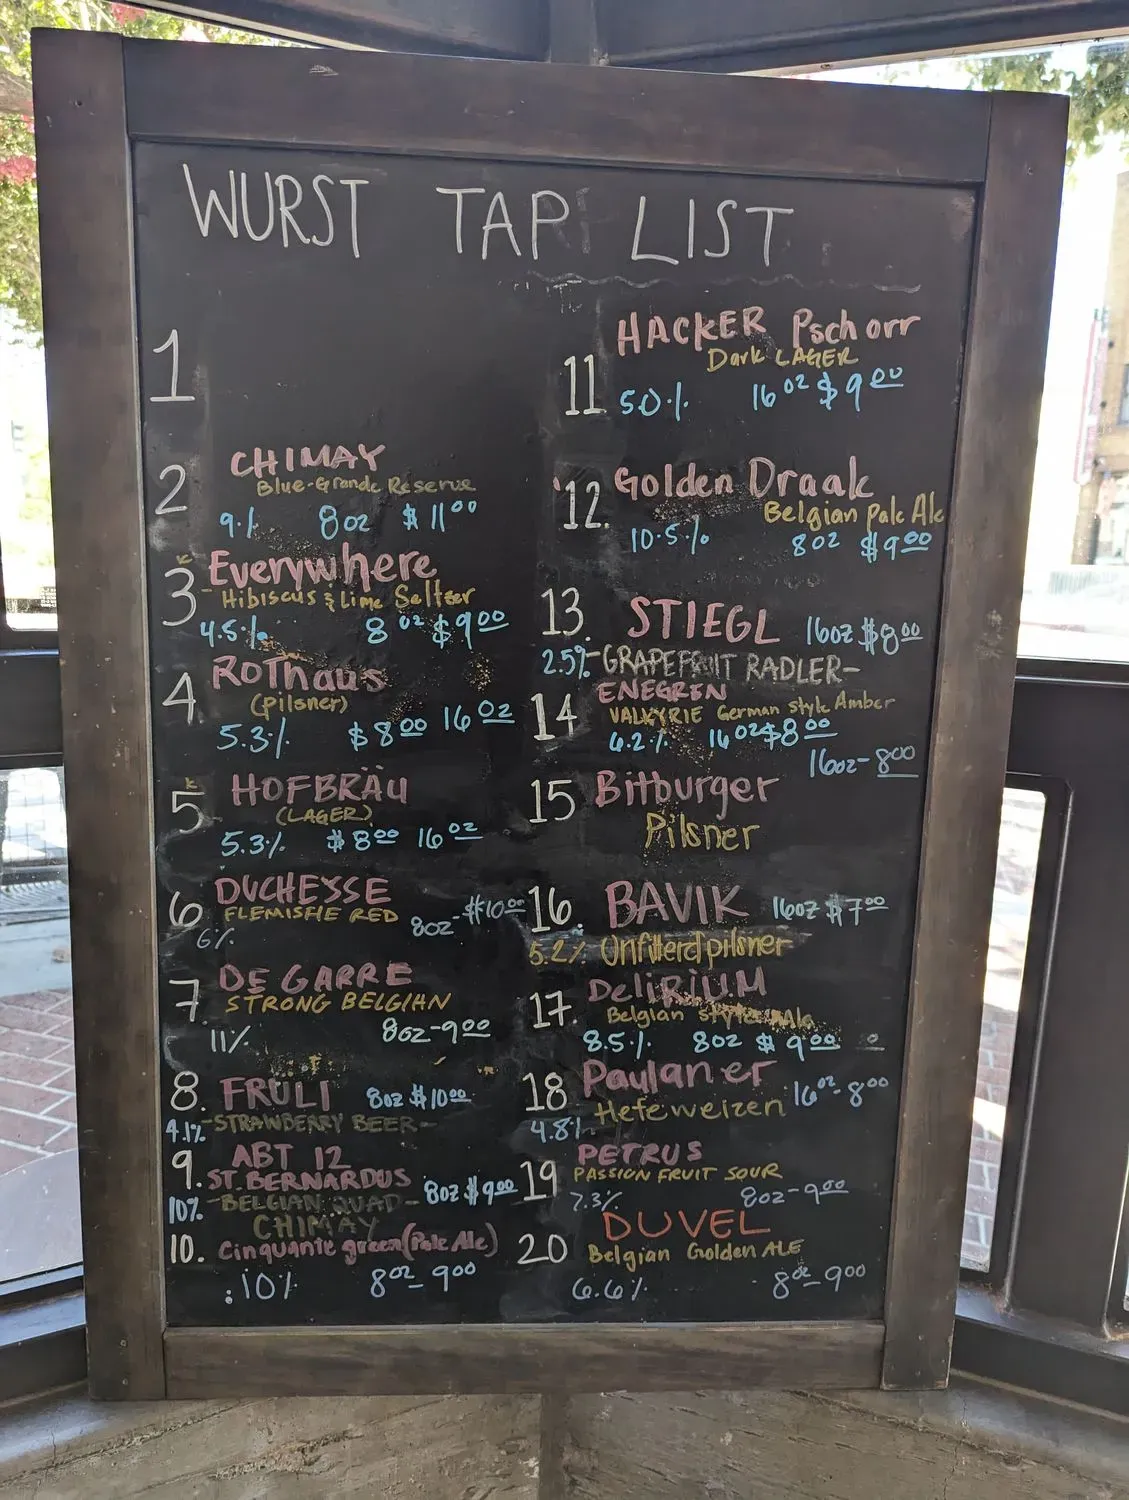 WURST TAP LIST
1
2 CHIMAY
Blue-Grande Reserve
9% 8oz $11.00
3 Everywhere
- Hibiscus & Lime Seltser
4.5% 8oz $9.00
4 ROTHAUS
(pilsner)
5.3% $8.00 16oz
5 HOFBRÄU
(LAGER)
5.3% $8.00 16oz
6 DUCHESSE
FLEMISHE RED 8oz-$10.00
6%
7 DE GARRE
STRONG BELGIAN
11% 8oz-9.00
8. FRULI 8oz $10.00
4.1% -STRAWBERRY BEER-
9. ABT 12
ST. BERNARDUS 8oz $9.00
10% -BELGIAN QUAD-
CHIMAY
10. Cinquante green (Pale Ale)
10% 8oz-9.00
11 HACKER Pschorr
Dark LAGER
5.0% 16oz $9.00
12. Golden Draak
Belgian Pale Ale
10.5% 8oz $9.00
13. STIEGL 16oz $8.00
2.5% -GRAPEFRUIT RADLER-
14 ENEGREN
VALKYRIE German style Amber
6.2% 16oz $8.00
16oz-8.00
15 Bitburger
Pilsner
16. BAVIK 16oz $7.00
5.2% Unfilterd pilsner
17. DELIRIUM
Belgian style Ale
8.5% 8oz $9.00
18 Paulaner 16oz-8.00
-Hefeweizen
4.8%
19 PETRUS
PASSION FRUIT SOUR
7.3% 8oz-9.00
20 DUVEL
Belgian Golden ALE
6.6% 8oz-9.00